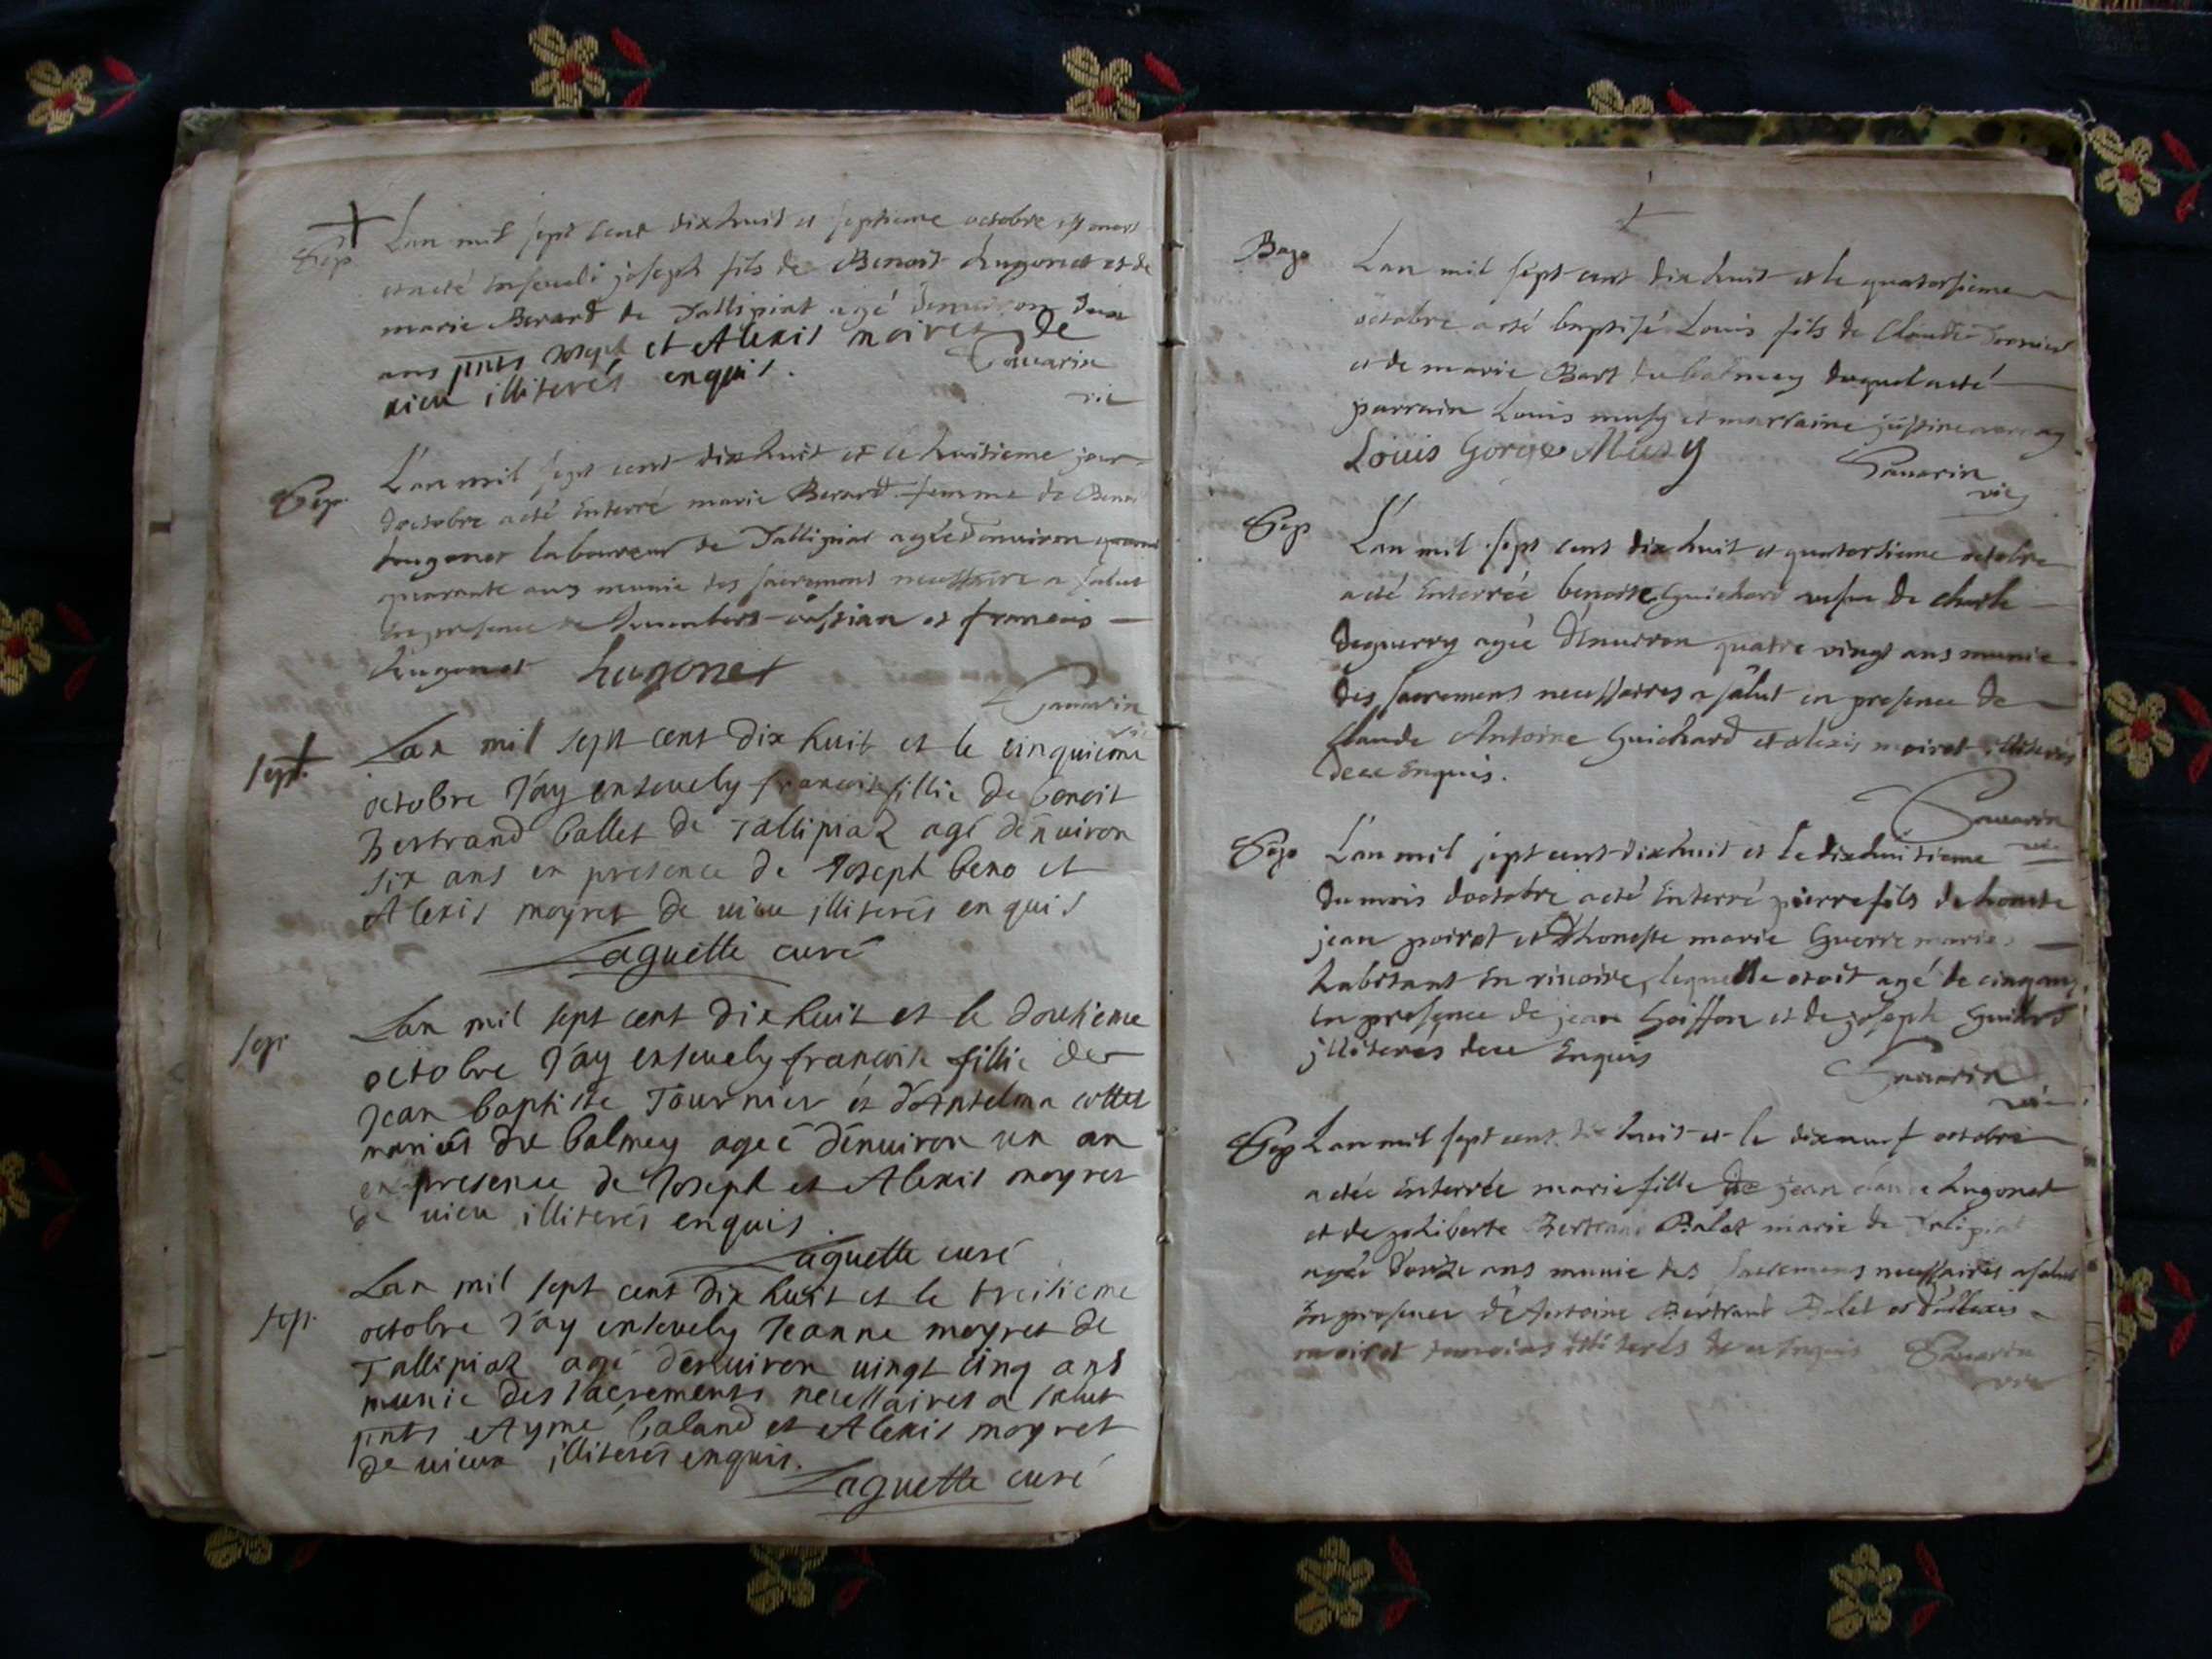 Sep
Lan mil sept cent dixhuit et septieme octobre est mort
et a été enseveli joseph fils de Benoit hugonet et de
marie Berard de Tallipiat agé denuiron deux
ans pnts Joseph et Alexis moiret de
uieu illiterés enquis.
Sauarin
vic
Sep
L'an mil sept cent dixhuit et le huitieme jour
doctobre a été Enterré marie Berard femme de Benoi
hugonet laboureur de Tallipiat agée denuiron
quarante ans munie des sacrements necessaire a salut
En presence de humbert cassian et francois
hugonet hugonet
Sauarin
vic
sept.
Lan mil sept cent dix huit et le cinquieme
octobre J'ay enseuely francoise fillie de benoit
Bertrand ballet de Tallipiaz agé dénuiron
six ans en presence de Joseph beno et
Alexis moyret de uieu illiterés enquis
Laguette curé
sep.
Lan mil sept cent dix huit et le douzieme
octobre J'ay enseuely francoise fillie de
Jean baptiste Tournier et d'Antelma collet
mariés du balmey ageé dénuiron un an
en presence de Joseph et Alexis moyret
de uieu illiterés enquis.
Laguette curé
sep.
Lan mil sept cent dix huit et le treizieme
octobre J'ay enseuely Jeanne moyret de
Tallipiaz agé dénuiron uingt cinq ans
munie des sacrements necessaires a salut
pnts Aymé baland et Alexis moyret
de uieux illiterés enquis.
Laguette curé
Bap
Lan mil sept cent dix huit et le quatorsieme
octobre a été baptisé Louis fils de Claude Tornier
et de marie Bart du balmey duquel a eté
parrain Louis musy et marraine justine
Louis Gorge Musy
Sauarin
vic
Sep
L'an mil sept cent dix huit et quatorsieme octobre
a été Enterrée benoite Guichard vefue de charle
Deguerry agée d'enuiron quatre vingt ans munie
des sacremens necessaires a salut en presence de
Claude Antoine Guichard et alexis moiret illiterés
de ce Enquis.
Sauarin
vic
Sep
L'an mil sept cent dixhuit et le dixhuitieme
du mois doctobre a été Enterré pierre fils de honete
jean poirot et d'honeste marie Guerre mariés
habitant En riuoire, lequelle etoit agé de cinq ans,
En presence de jean Goiffon et de joseph Guillod
illiterés de ce Enquis
Sauarin
vic
Sep
Lan mil sept cent dix huit et le dixneuf octobre
a etée enterrée marie fille de jean claude hugonet
et de philiberte Bertrand Balet marié de Talipiat
agée d'onze ans munie des sacremens necessaires a salut
En presence d'Antoine Bertrand Balet et d'allexis
moiret temoins illiterés de ce Enquis Sauarin
vic